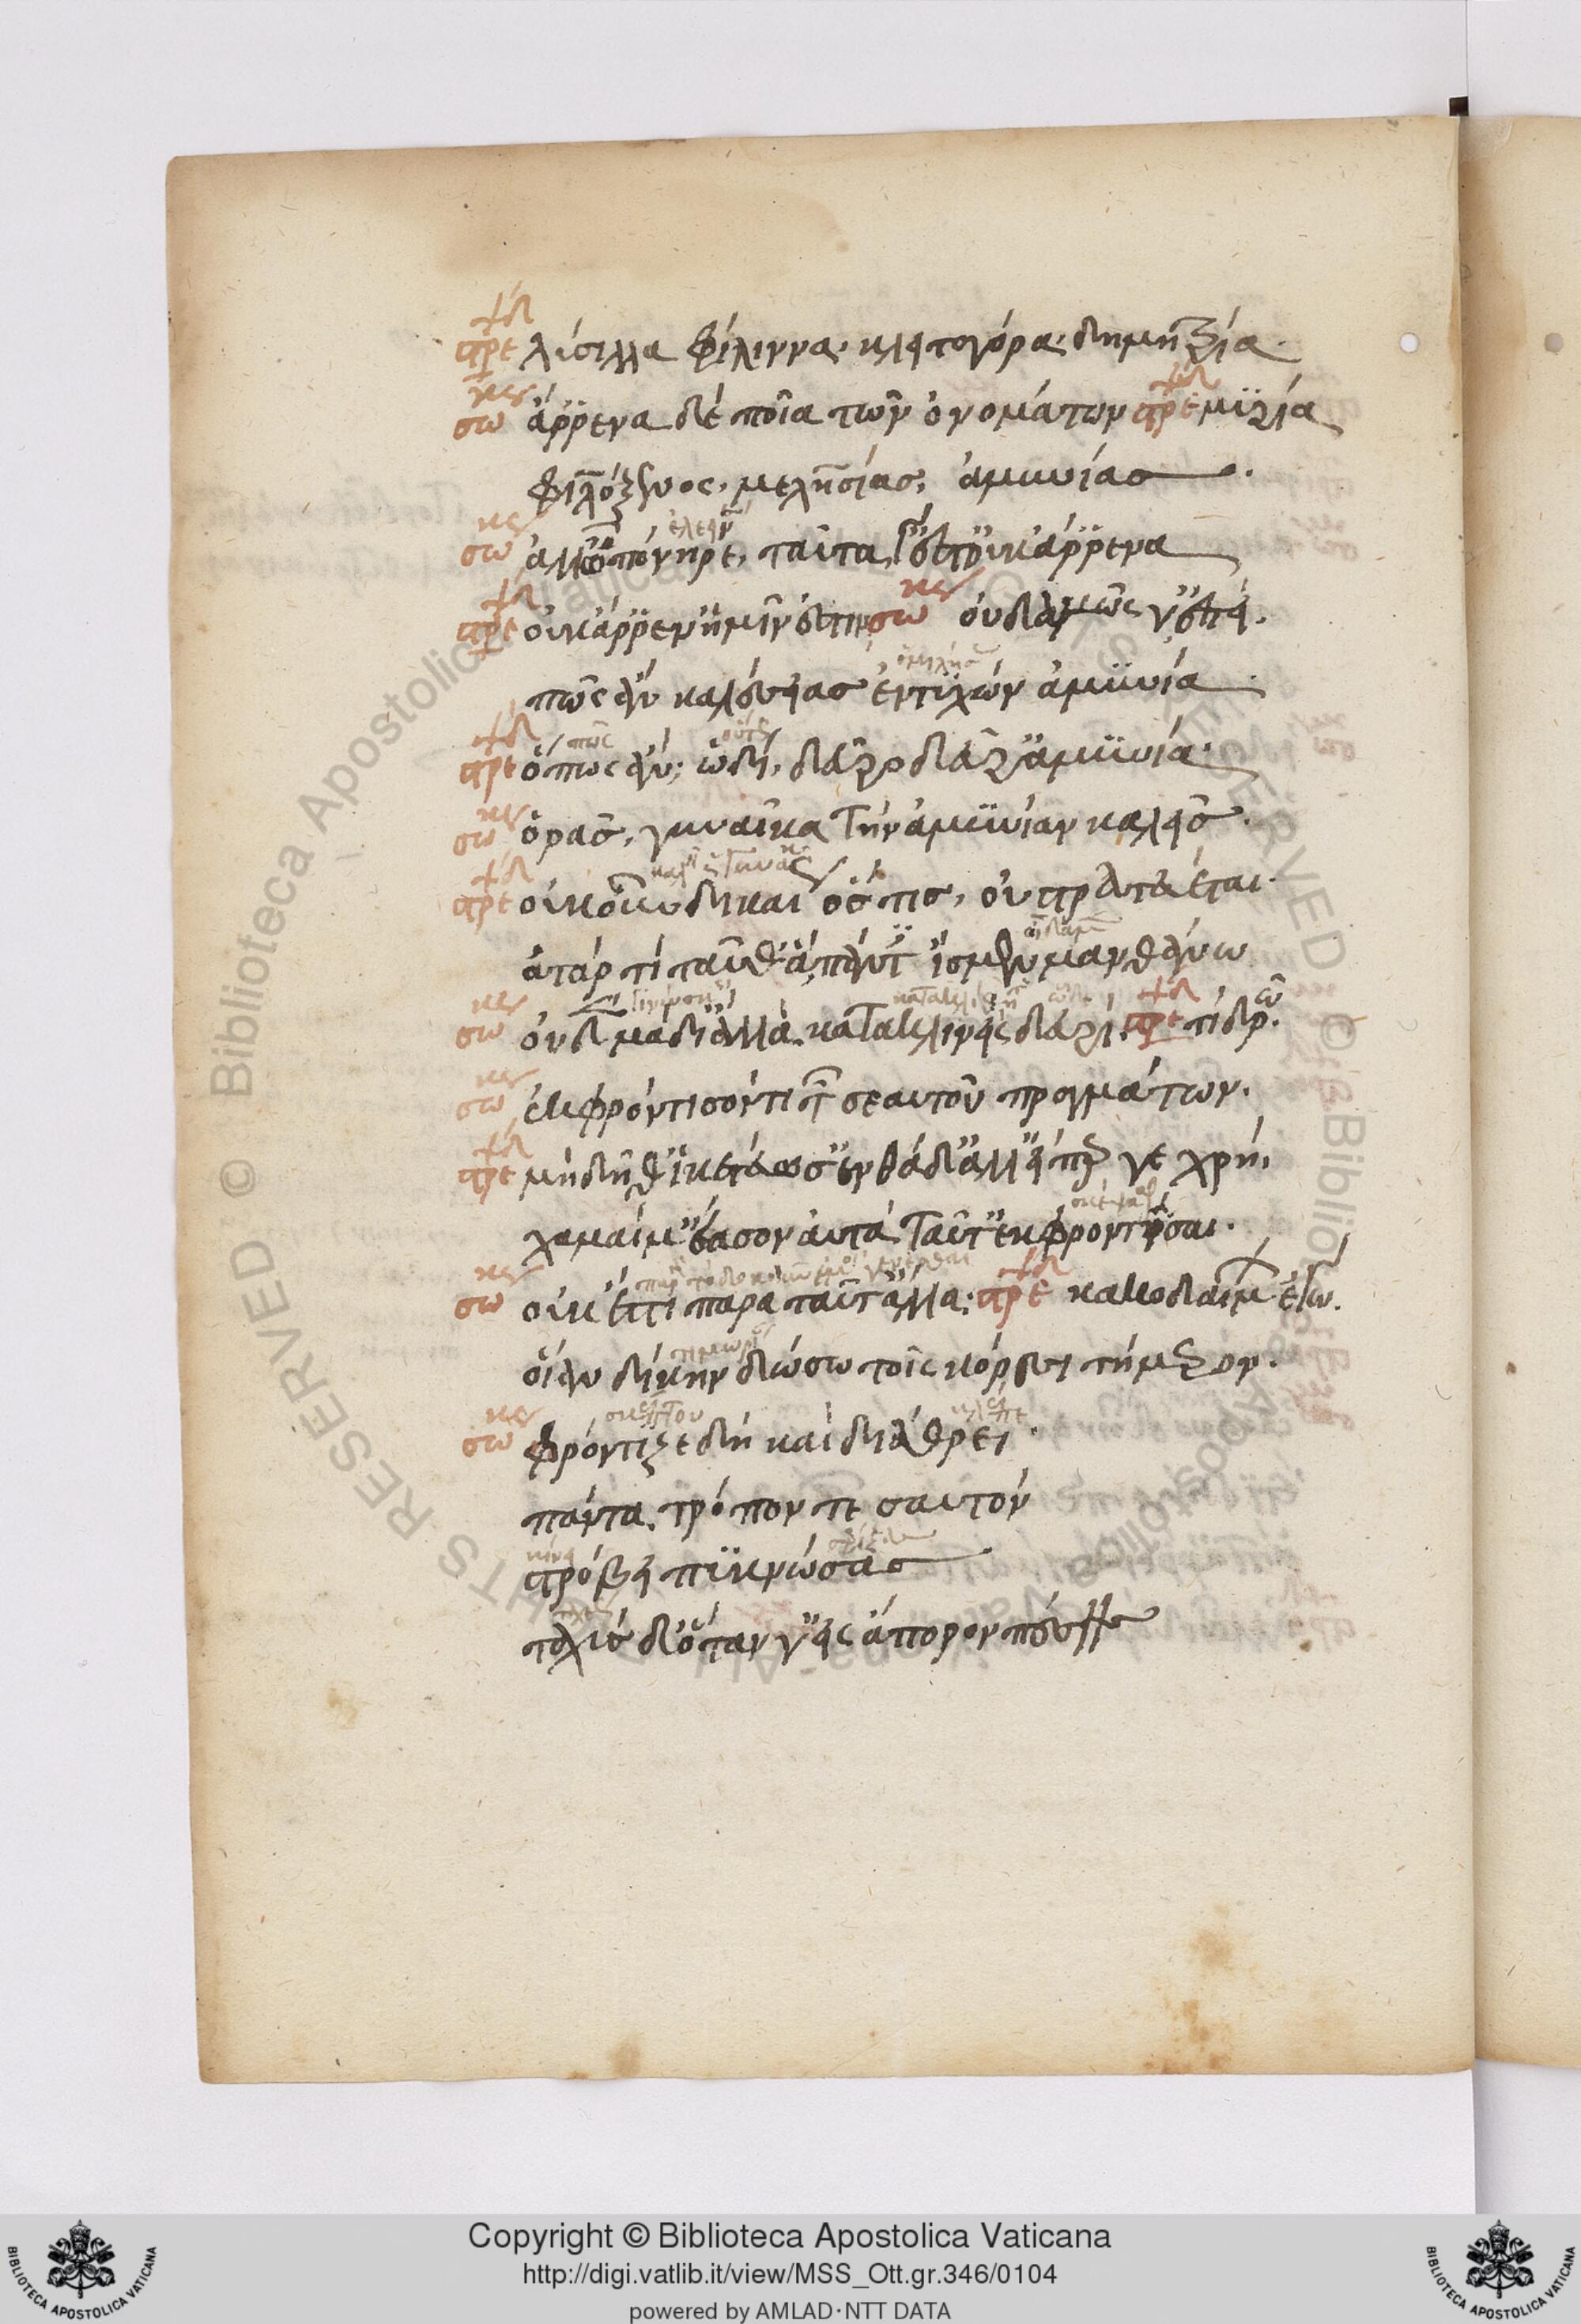 πρε λύσιλλα φίλιννα· κλειταγόρα· δημητρία·
σω ἄρρενα δὲ ποῖα τῶν ὀνομάτων πρε μυρία
φιλόξενος, μελησίας, ἀμυνίας.
σω ἀλλ' ὦ πόνηρε, ταῦτα γ' ἔστ' οὐκ ἄρρενα
πρε οὐκ ἄρρεν' ἡμῖν ἐστιν σω οὐδαμῶς γ' ἐπεὶ.
πῶς ἂν καλέσειας ἐντυχὼν ἀμυνία
πρε ὅπως ἂν; ὡδὶ, δεῦρο δεῦρ' ἀμυνία·
σω ὁρᾷς, γυναῖκα τὴν ἀμυνίαν καλεῖς.
πρε οὔκουν δικαίως ὅστις, οὐ στρατεύεται·
ἀτὰρ τί ταῦθ' ἃ πάντ' ἴσμεν μανθάνω
σω οὐδὲν μὰ δί' ἀλλὰ κατακλινεὶς δευρί. πρε τί δρῶ.
σω ἐκφρόντισόν τι τῶν σεαυτοῦ πραγμάτων.
πρε μὴ δῆθ' ἱκετεύω σ' ἐνθάδ' ἀλλ' εἴπερ γε χρή,
χαμαί μ' ἔασον αὐτὰ ταῦτ' ἐκφροντίσαι.
σω οὐκ ἔστι παρὰ ταῦτ' ἄλλα· πρε κακοδαίμων ἐγώ.
οἵαν δίκην δώσω τοῖς κόρεσι τήμερον.
σω φρόντιζε δὴ καὶ διάθρει·
πάντα τρόπον τε σαυτὸν
στρόβει πυκνώσας
ταχὺς δ' ὅταν γ' εἰς ἄπορον πέσῃς
Copyright © Biblioteca Apostolica Vaticana
http://digi.vatlib.it/view/MSS_Ott.gr.346/0104
powered by AMLAD·NTT DATA